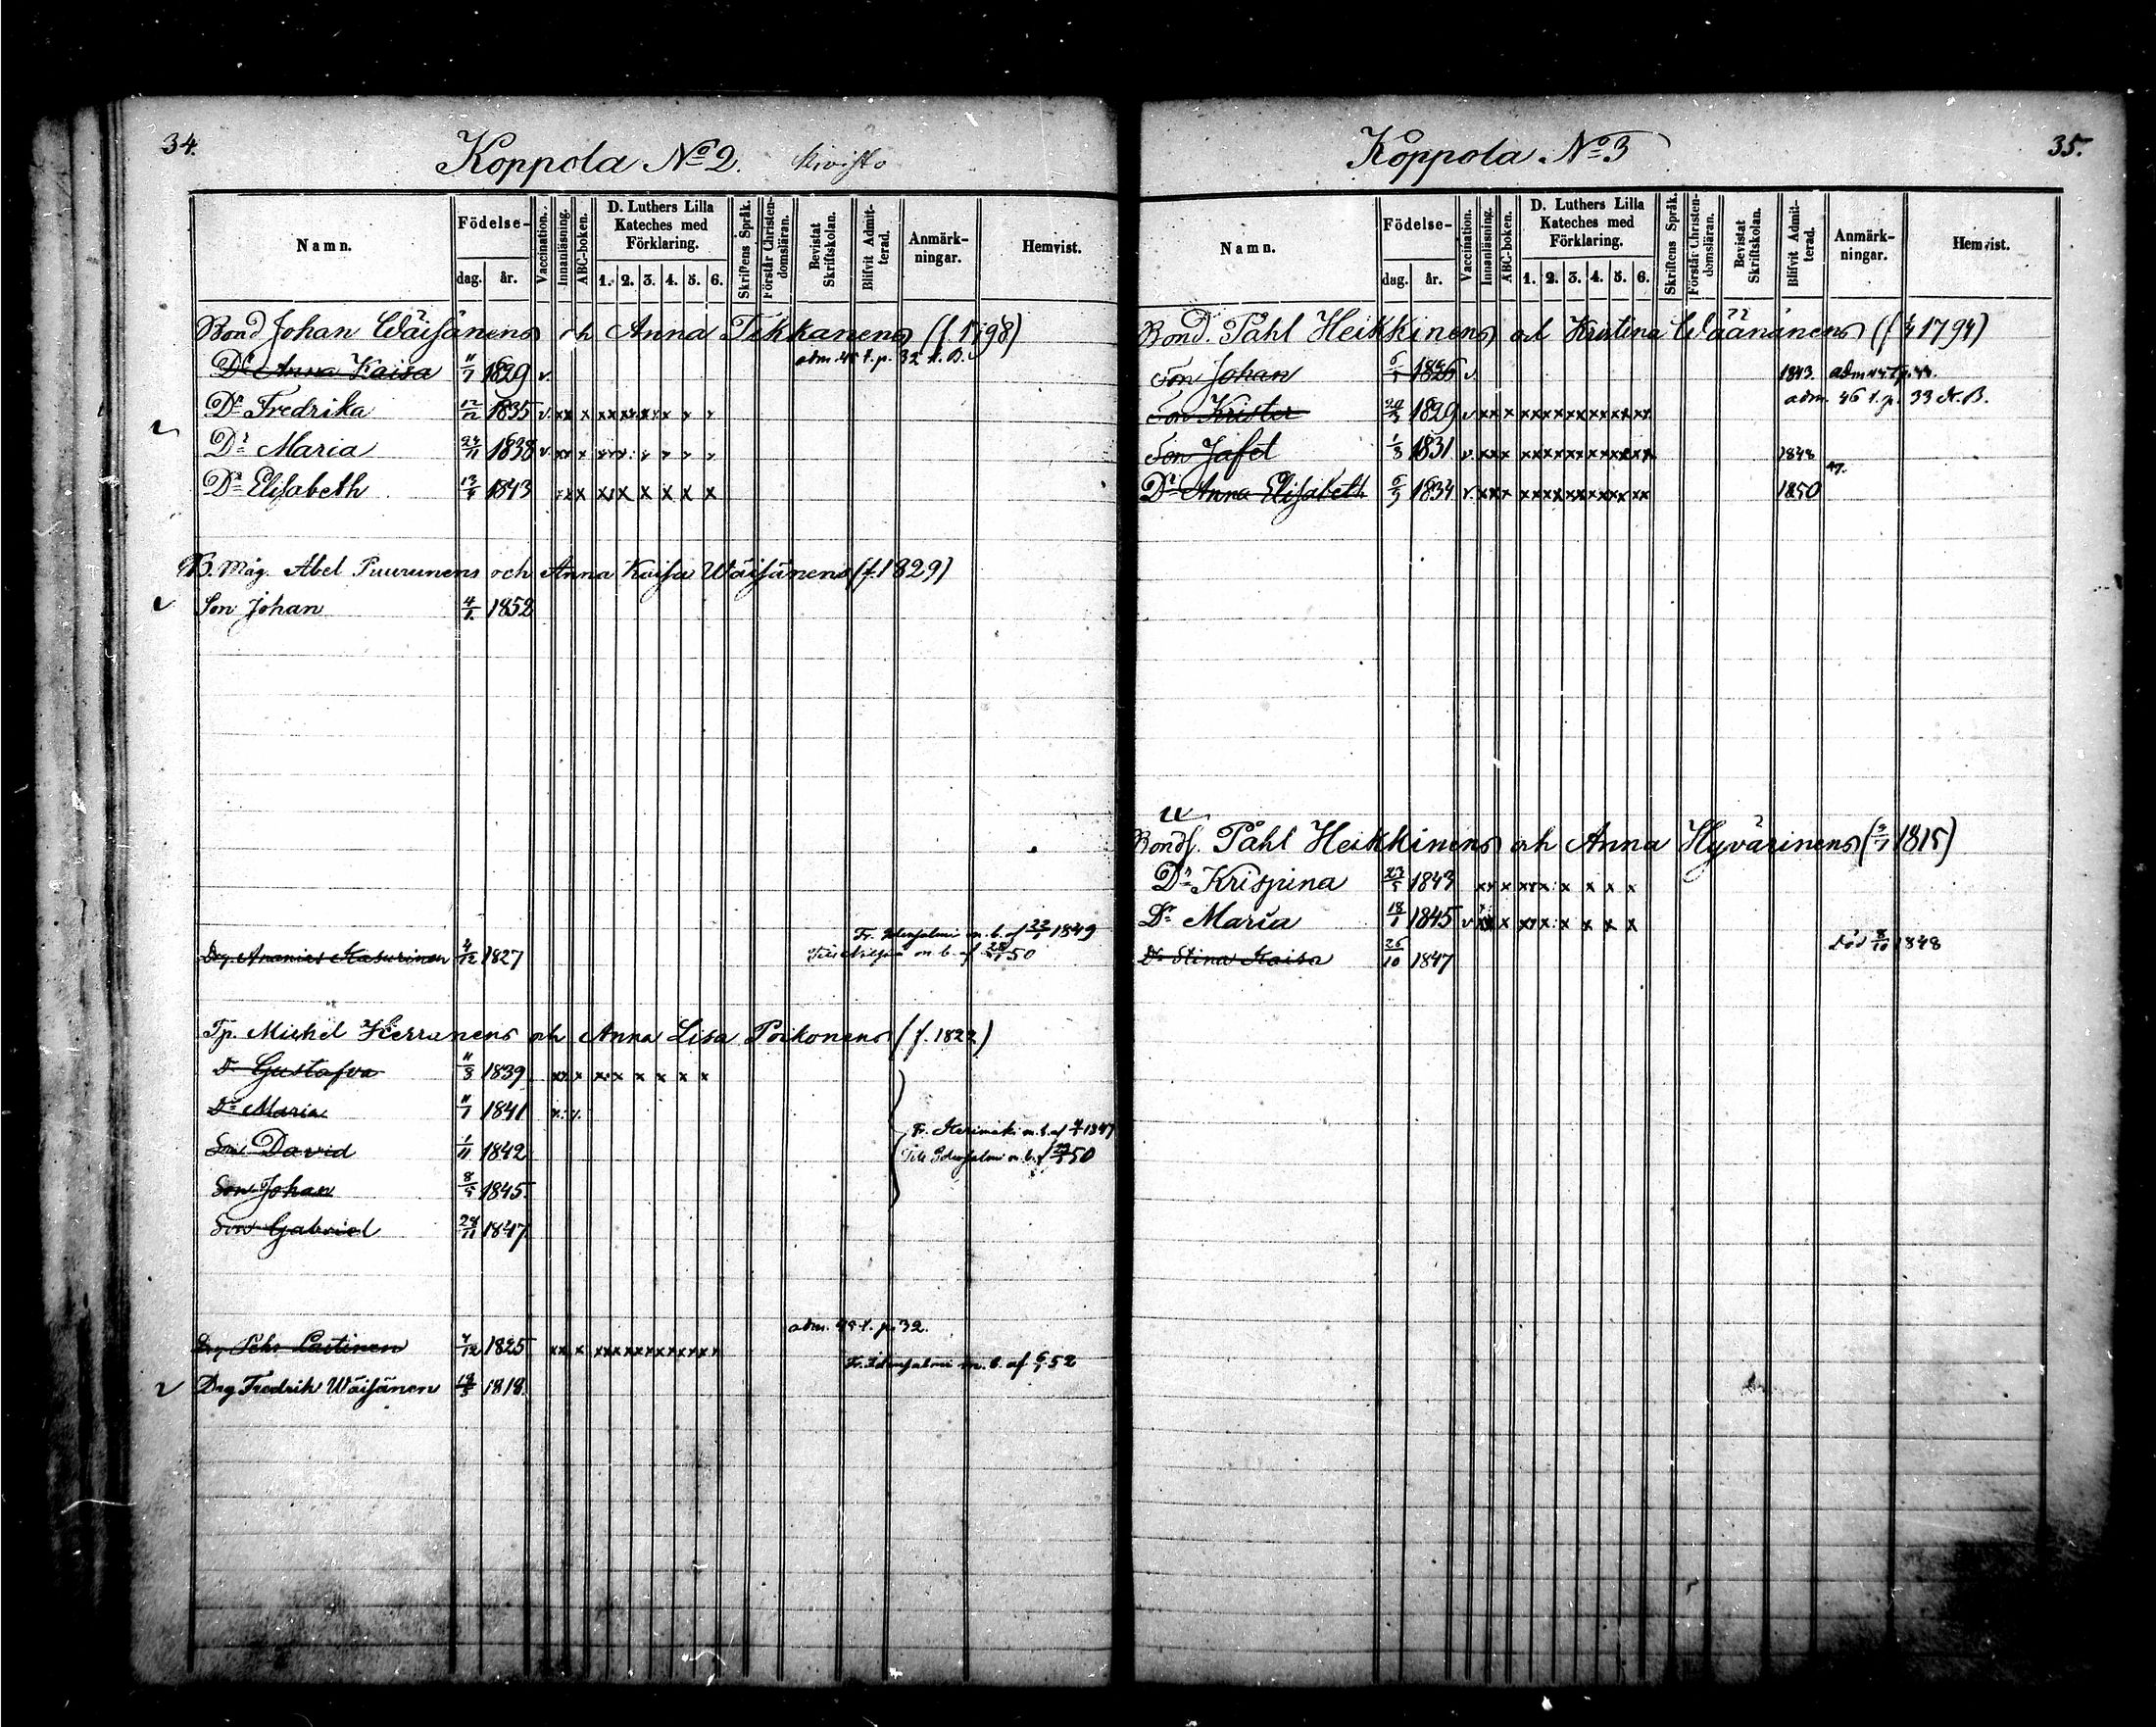 34.
Koppola No 2. Kivisto
Namn. Födelse- dag. år. Vaccination. Innanläsning. ABC-boken. D. Luthers Lilla Kateches med Förklaring. 1. 2. 3. 4. 5. 6. Skriftens Språk. Förstår Christendomsläran. Bevistat Skriftskolan. Blifvit Admitterad. Anmärkningar. Hemvist.
Bond Johan Wäisänens och Anna Tikkanens (f 1798)
adm. 45 f. p. 32 K. B.
Dr Anna Kaisa 11/7 1829 v.
Dr Fredrika 12/12 1835 v. xx x xx xx x x x x x
Dr Maria 24/11 1838 v xx x x x x x x x x
Dr Elisabeth 13/4 1843 xx x xx x x x x x
B. Måg. Abel Puurunens och Anna Kaisa Wäisänens (f. 1829)
Son Johan 4/1. 1852
Fr. Idensalmi m. b. af 22/1 1849
Drg Ananias Kasurinen 4/12 1827 Till Nilsiä m. b. af 28/1 50
Tp. Mickel Herranens och Anna Lisa Poikonens (f. 1822)
Dr Gustafva 11/3 1839 xx x xx x x x x x
Dr Maria 11/1 1841 x. x.
Fr. Kerimäki m. b. af 4/1 1847
Son David 1/11 1842 Till Idensalmi m. b. af 50
Son Johan 8/5 1845
Son Gabriel 28/11 1847
adm. 45 f. p. 32.
Drg Pehr Lastinen 4/12 1825 xx x xxxxxxxxxxxx
Fr. Idensalmi m. b. af 6/1 52
Drg Fredrik Wäisänen 18/5 1818.
35.
Koppola No 3
Namn. Födelse- dag. år. Vaccination. Innanläsning. ABC-boken. D. Luthers Lilla Kateches med Förklaring. 1. 2. 3. 4. 5. 6. Skriftens Språk. Förstår Christendomsläran. Bevistat Skriftskolan. Blifvit Admitterad. Anmärkningar. Hemvist.
Bond. Påhl Heikkinens och Kristina Wäänänens (f 1794)
Son Johan 1826 v. 1843. adm
adm. 46 f. p. 33 K. B.
Son Krister 1829 v xx x xxxxxxxxxxxx
Son Jafet 1/3 1831 v. xx x xxxxxxxxxxxx 1848
Dr Anna Elisabeth 6/5 1834 v. xx x xxxxxxxxxxxx 1850
Bonds. Påhl Heikkinens och Anna Hyvärinens (3/7 1815)
Dr Krispina 23/5 1843 xx x xx x x x x x
Dr Maria 18/1 1845 v xx x xx x x x x x
död 8/10 1848
Dr Stina Kaisa 26/10 1847